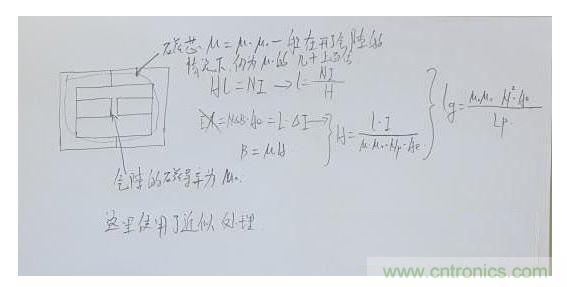 磁芯 μ = μ·μ₀ 一般在开了气隙的
情况下,仍为μ₀的几十上百倍
Hl = NI → l = NI/H
= N·ΔB·Ae = L·ΔI → H = L·I/(μ·μ₀·Np·Ae)
B = μH
lg = μ·μ₀·N²·Ae/Lp
气隙的磁导率为μ₀
这里使用了近似处理
www.cntronics.com